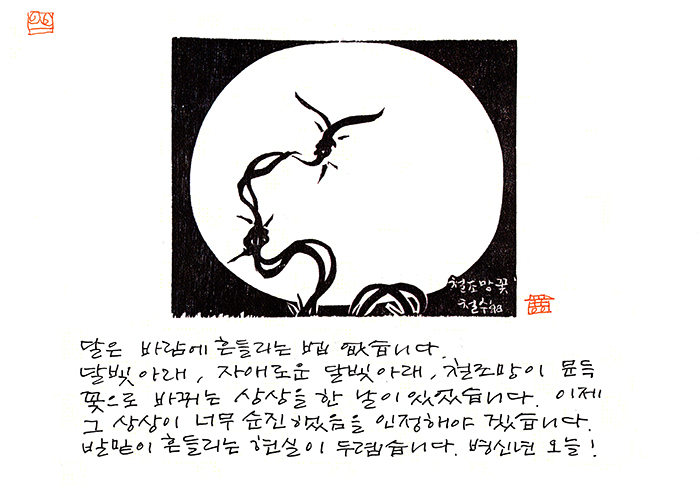 철조망꽃
철수 '93
달은 바람에 흔들리는 법 없습니다.
달빛아래, 자애로운 달빛아래, 철조망이 문득
꽃으로 바뀌는 상상을 한 날이 있었습니다. 이제
그 상상이 너무 순진했음을 인정해야 겠습니다.
발밑이 흔들리는 현실이 두렵습니다. 병신년 오늘!